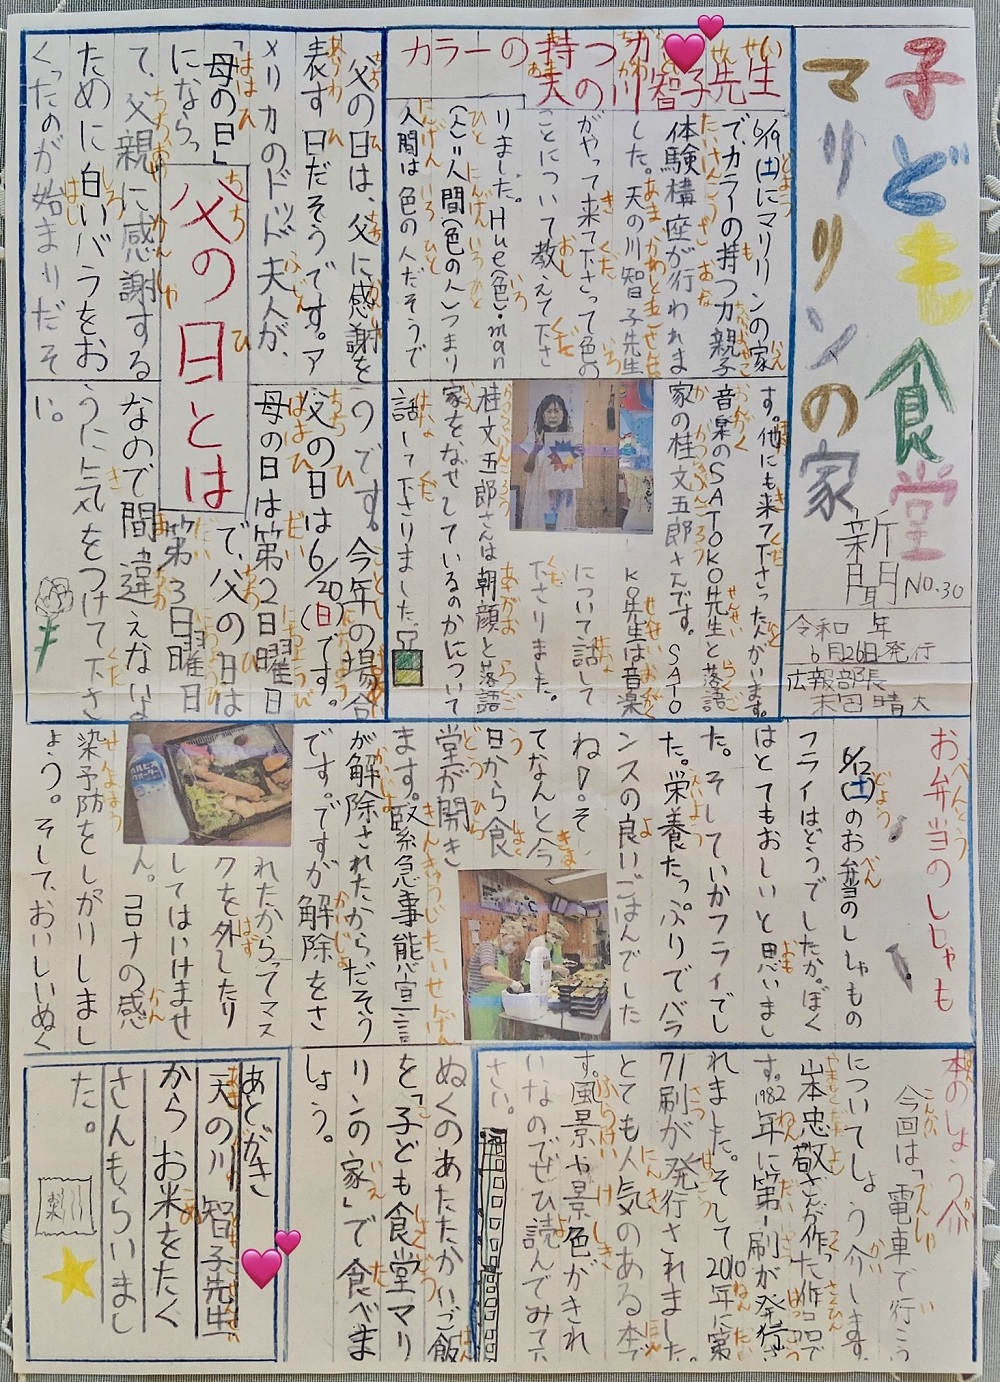 子ども食堂
マリリンの家
新聞 No.30
令和 年
6月26日発行
広報部長
末田晴大
カラーの持つ力
天の川智子先生
6/19(土)にマリリンの家
で、カラーの持つ力親子
体験構座が行われま
した。天の川智子先生
がやって来て下さって色の
ことについて教えて下さ
りました。Hue(色)・man
(人)=人間(色の人)つまり
人間は色の人だそうで
す。他にも来て下さった人がいます。
音楽のSATOKO先生と落語
家の桂文五郎さんです。SATO
KO先生は音楽
について話して
下さりました。
桂文五郎さんは朝顔と落語
家をなぜしているのかについて
話して下さりました。
父の日とは
父の日は、父に感謝を
表す日だそうです。ア
メリカのドッド夫人が、
「母の日」
にならっ
て、父親に感謝する
ために白いバラをお
くったのが始まりだそ
うです。今年の場合
父の日は6/20(日)です。
母の日は第2日曜日
で、父の日は
第3日曜日
なので間違えないよ
うに気をつけて下さ
い。
お弁当のししゃも
6/12(土)のお弁当のししゃもの
フライはどうでしたか。ぼく
はとてもおしいと思いまし
た。そしていかフライでし
た。栄養たっぷりでバラ
ンスの良いごはんでした
ね♪。そ
てなんと今
日から食
堂が開き
ます。緊急事能宣言
が解除されたからだそう
です。ですが解除をさ
れたからってマス
クを外したり
してはいけませ
ん。コロナの感
染予防をしがりしまし
ょう。そして、おいしいぬく
ぬくのあたたかいご飯
を「子ども食堂マリ
リンの家」で食べま
しょう。
本のしょう介
今回は「電車で行こう」
についてしょう介します。
山本忠敬さんが作た作品で
す。1982年に第1刷が発行さ
れました。そして2010年に第
71刷が発行されました。
とても人気のある本で
す。風景や景色がきれ
いなのでぜひ読んでみて下
さい。
あとがき
天の川智子先生
からお米をたく
さんもらいまし
た。